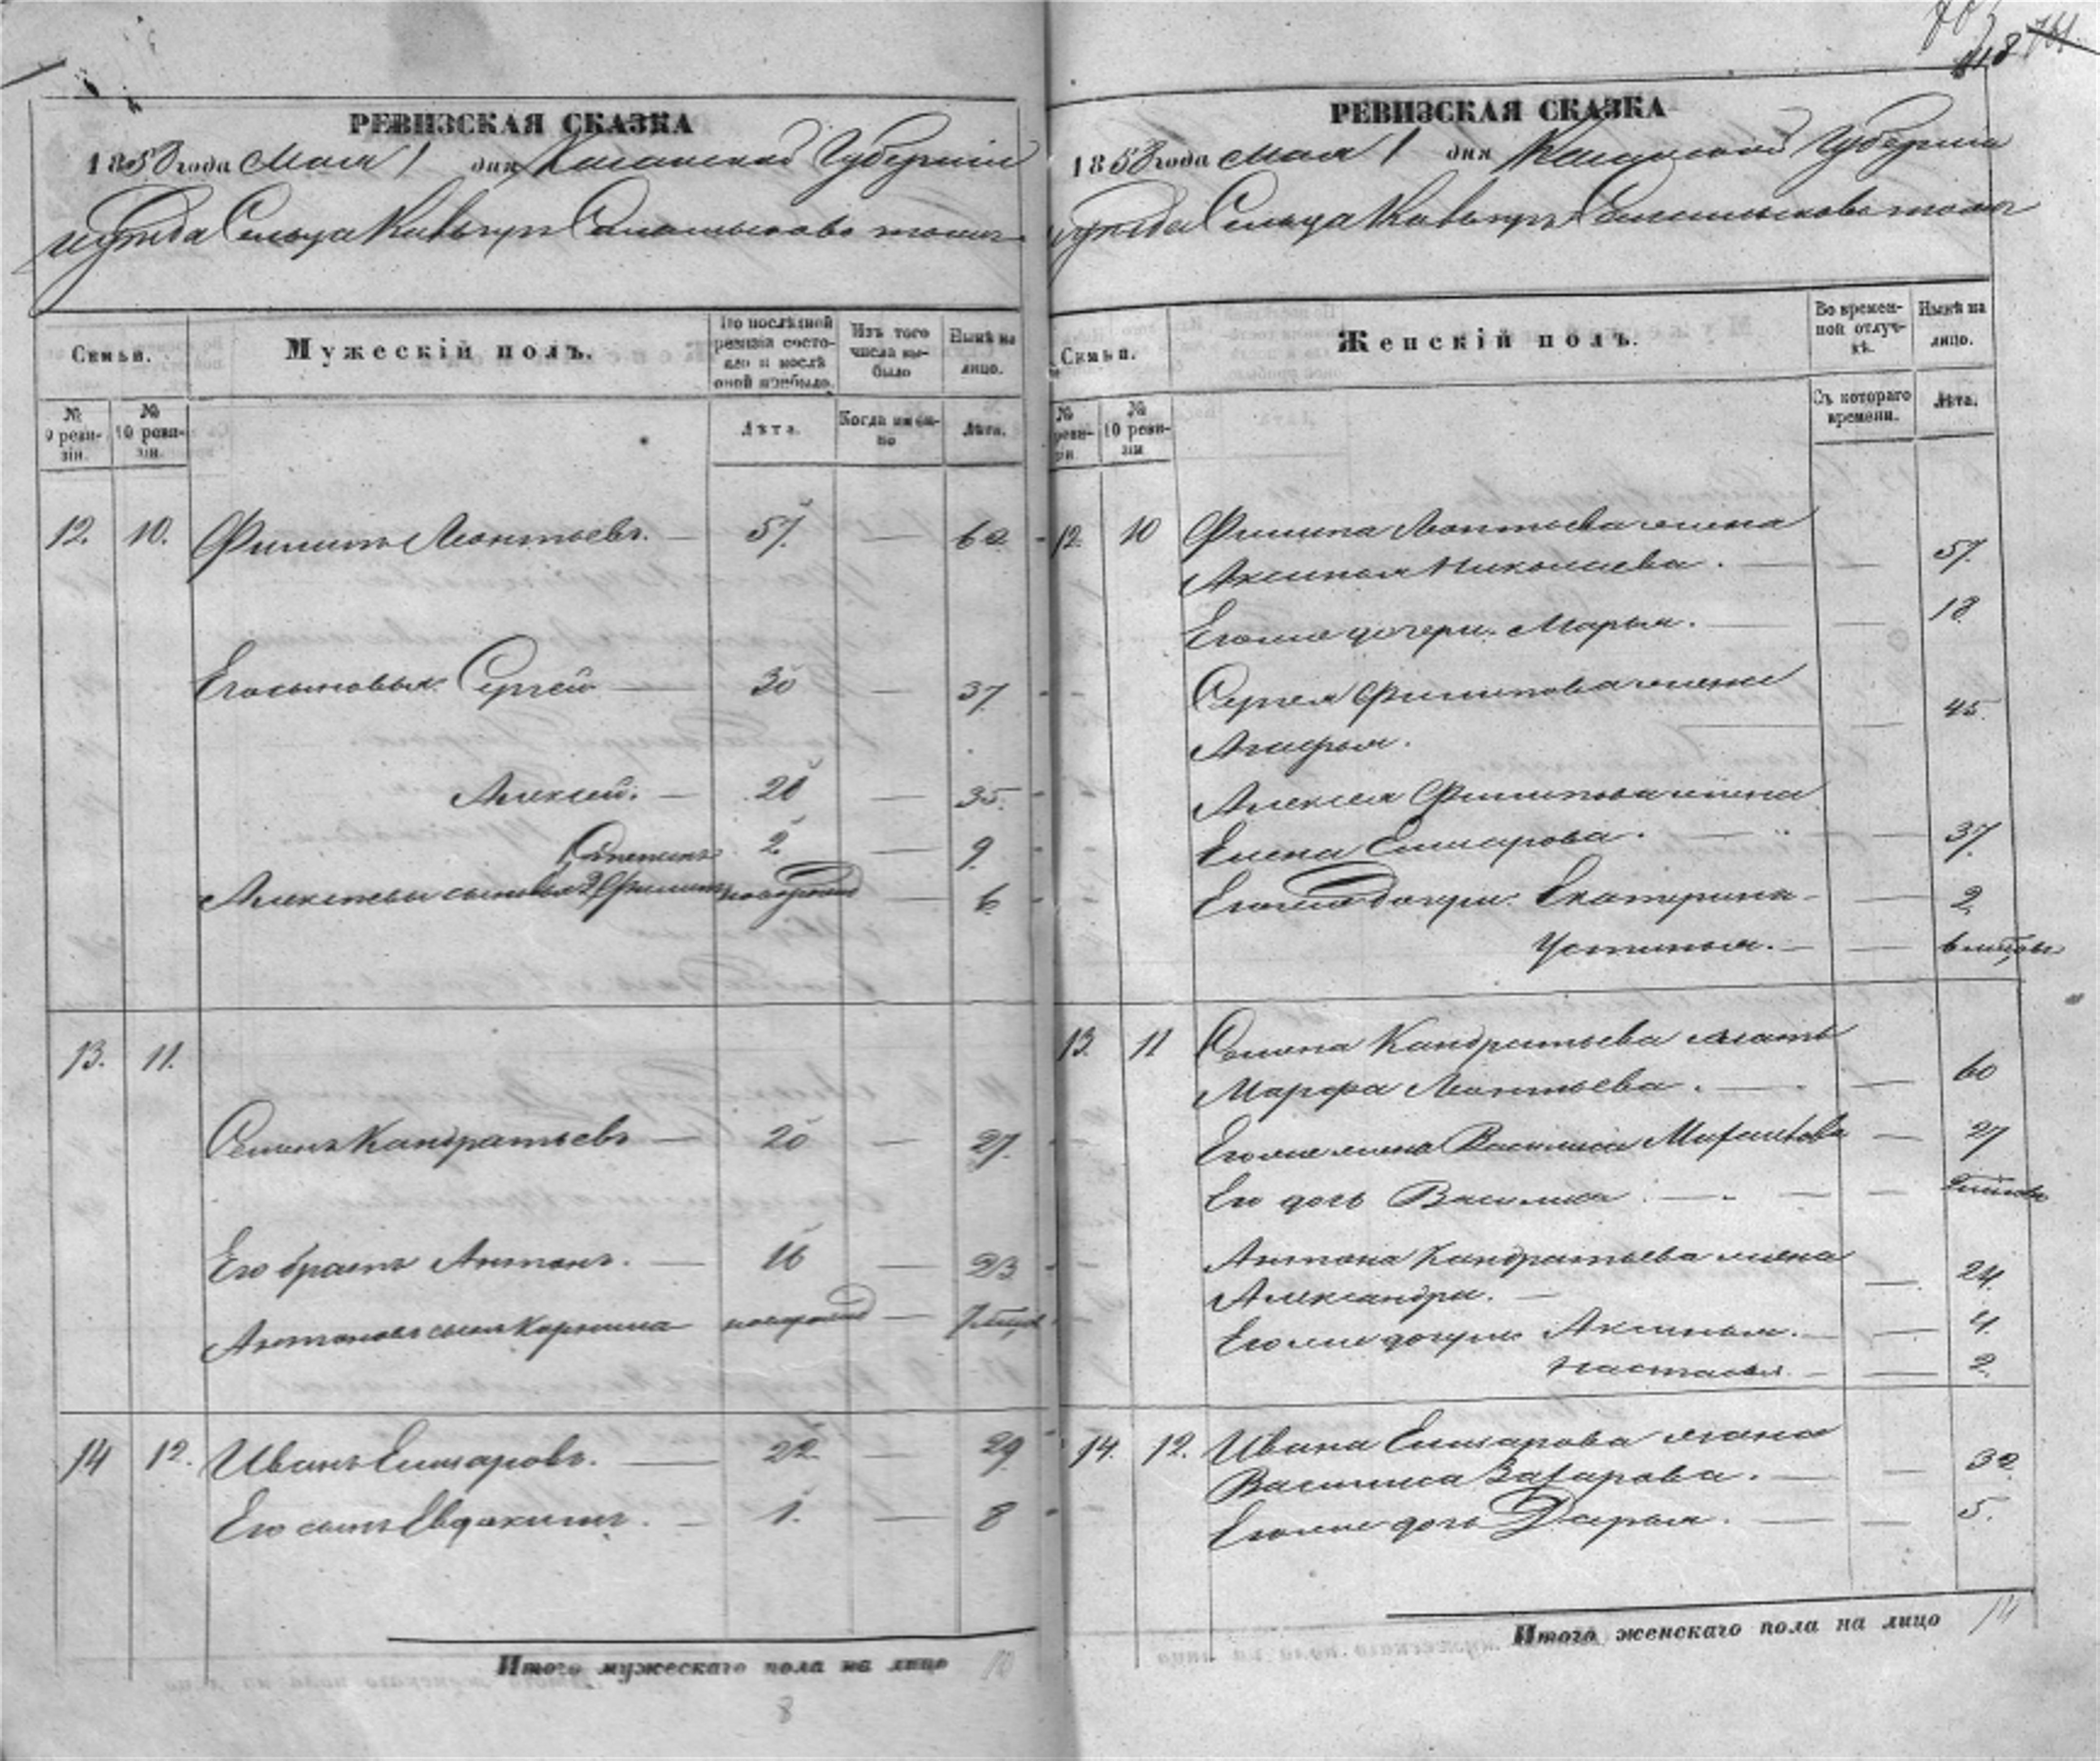 РЕВИЗСКАЯ СКАЗКА
1858 года Мая 1 дня Казанской Губерніи
уѣзда Сельца
Семьи.
Мужескій полъ.
По послѣдней ревизіи состояло и послѣ оной прибыло.
Изъ того числа выбыло
Нынѣ на лицо.
№ 9 ревизіи.
№ 10 ревизіи.
Лѣта.
Когда именно
Лѣта.
12. 10. Филипъ Леонтьевъ. — 57. — 62
Его сыновья: Сергей — 30 — 37
Алексей. — 28 — 35.
Степанъ 2 — 9.
Алексеевы сыновья 2 Филипъ новорожд — 6
13. 11.
Семенъ Кандратьевъ — 20 — 27.
Его братъ Антонъ. — 16 — 23
Антоновъ сынъ новорожд — 7 мѣсяц
14 12. Иванъ Елизаровъ. — 22. — 29
Его сынъ Евдокимъ. — 1. — 8
Итого мужескаго пола на лицо 10
8
703
418 704
РЕВИЗСКАЯ СКАЗКА
1858 года Мая 1 дня Казанской Губерніи
уѣзда Сельца
Семьи.
Женскій полъ.
Во временной отлучкѣ.
Нынѣ на лицо.
№ ревизіи
№ 10 ревизіи
Съ котораго времени.
Лѣта.
12. 10 Филипа Леонтьева жена
Аксинья Николаева. — 57.
Его же дочери. Марья. — 18
Сергея Филипова жена
Агафья. — 45.
Алексея Филипова жена
Елена Елизарова. — 37.
Его же дочери: Екатерина — 2
Устинья. — 6 мѣсяцовъ
13. 11 Семена Кандратьева мать
Марфа Леонтьева. — 60
Его же жена Василиса Михайлова — 27
Его дочь Василиса. —
Антона Кандратьева жена
Александра. — 24.
Его же дочери Аксинья. — 4.
Настасья. — 2.
14. 12. Ивана Елизарова жена
Василиса Захарова. — 32
Его же дочь Дарья. — 5.
Итого женскаго пола на лицо 14